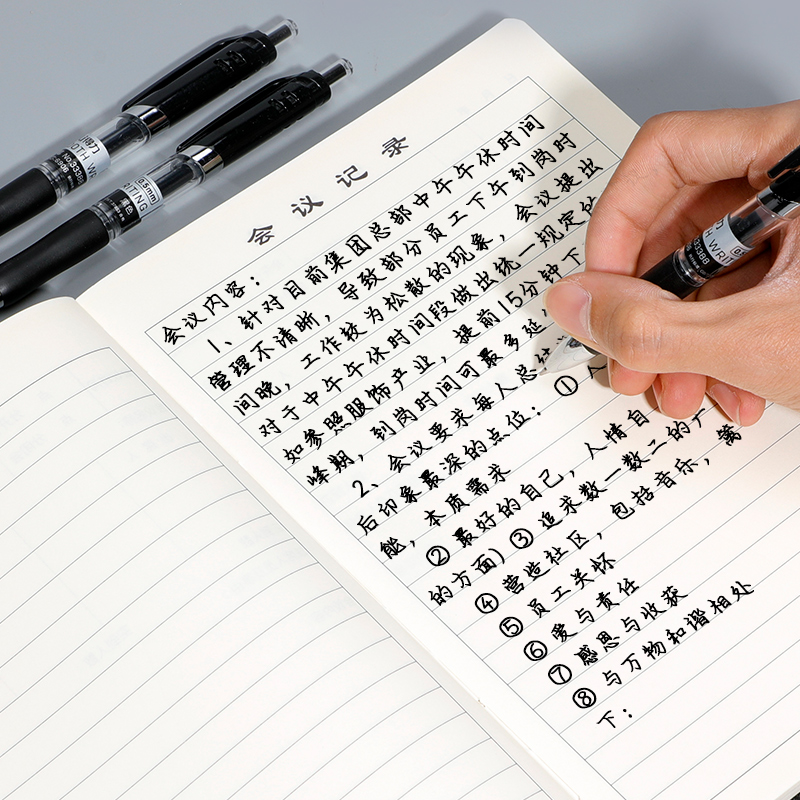 会议记录
会议内容：
1、针对目前集团总部中午午休时间
管理不清晰，导致部分员工下午到岗时
间晚，工作较为松散的现象，会议提出
对于中午午休时间段做出统一规定的
如参照服饰产业，提前15分钟下
峰期，到岗时间可最多延
2、会议要求每人总结
后印象最深的点位：①人
能，本质需求
②最好的自己，人情自
的方面）③追求数一数二的产
④营造社区，包括音乐，篱
⑤员工关怀
⑥爱与责任
⑦感恩与收获
⑧与万物和谐相处
下：
得力
SMOOTH WRITING
No.33388
0.5mm
黑色